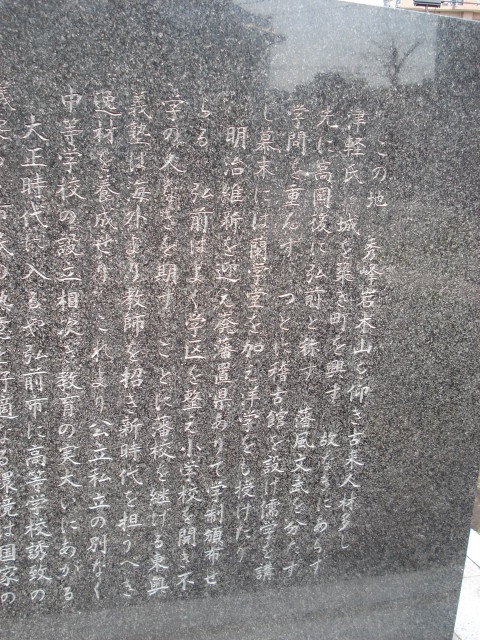 この地 秀峰岩木山を仰ぎ古来人材多し
津軽氏 城を築き町を興す 故なきにあらず
先に高岡後に弘前と称す 藩風文武を分たず
学問を重んず つとに稽古館を設け儒学を講
じ幕末には蘭学堂を加え洋学をも授けたり
明治維新を迎え廃藩置県ありて学制頒布せ
らる 弘前はよく学区を整え小学校を開き不
学の人なきを期す ことに藩校を継げる東奥
義塾は海外より教師を招き新時代を担うべき
逸材を養成せり これより公立私立の別なく
中等学校の設立相次ぎ教育の実大いにあがる
大正時代に入るや弘前市に高等学校誘致の
好適なる環境は国家の